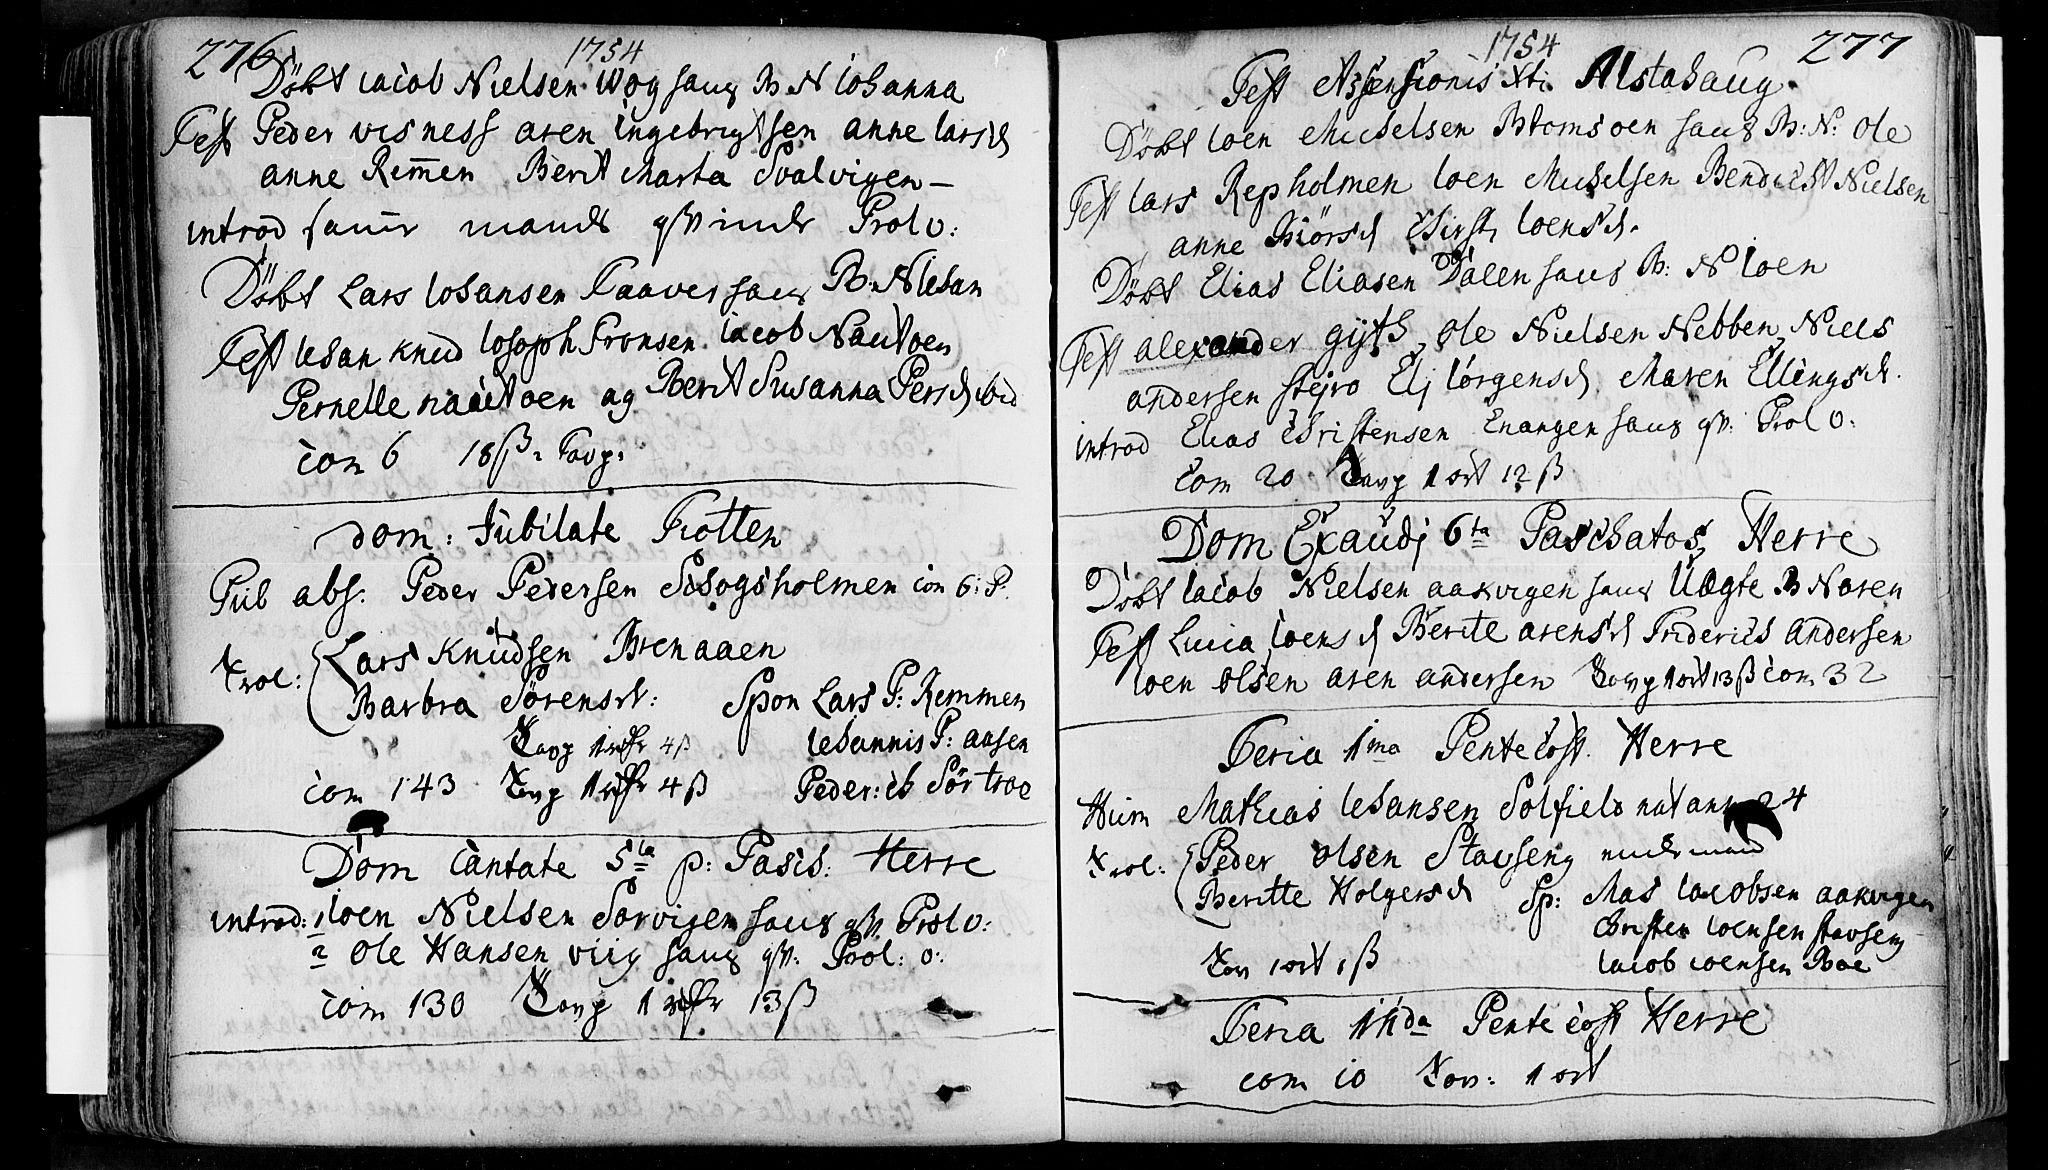 276
1754
Döbt iacob Nielsen Wog hans B N iohanna
Test Peder visness aren ingebrigtsen anne larsd
anne Remen Berit Marta Svalvigen
introd samr mands qvinde Prol 0:
Döbt Lars iohansen Taaver hans B: N iohan
Test iohan knud iosoph Fronsen iacob Nautoen
Pernelle nautoen og Berit Susanna Persd ibid
com 6 18 β. Tavp.
Dom: Jubilate Trotten
Pub abs: Peder Pedersen Schogsholmen con 6: P.
Trol: Lars Knudsen Brenaaen
Barbra Sörensd: Spon Lars P: Remmen
Tavp 4β iohannis P: aasen
com 143 Tavp 4β Peder: ib Sörtroe
Dom Cantate 5ta p: Pasch: Herre
introd: 1 ioen Nielsen Sorvigen hans qv Prol 0:
2 Ole Hansen viig hans qv: Prol: 0:
com 130 Tavp 1 13β
277
1754
Fest Assensionis Xti Alstahaug
Döbt ioen Michelsen Blomsoen hans B: N: Ole
Test lars Repholmen ioen Michelsen Bendicht Nielsen
anne Biörsd Chirst ioensd.
Döbt Elias Eliasen Dalen hans B: N ioen
Test alexander gyth, Ole Nielsen Nebben, Niels
andersen stejro Elj iörgensd. Maren Ellingsd.
introd Elias Christensen Enangen hans qv: Prol 0:
Com 20 Tavp 1 ort 12 β
Dom Exaudj 6ta Paschatos Herre
Döbt iacob Nielsen aakvigen hans Uægte B N aren
Test Lucia ioensd Berite arensd Friderich andersen
ioen olsen aren andersen Tavp 1 ort 13β com 32
Feria 1ma Pentecost. Herre
Hum Mathias iohansen Solfield nat ann 24
Trol: Peder Olsen Stavseng
Beritte Holgersd Sp: Mas iacobsen aakvigen
Christen ioensen stavseng
Tav 1 ort 1 β iacob ioensen Boe
Feria IIda Pentecost Herre
com 10 Tav: 1 ort